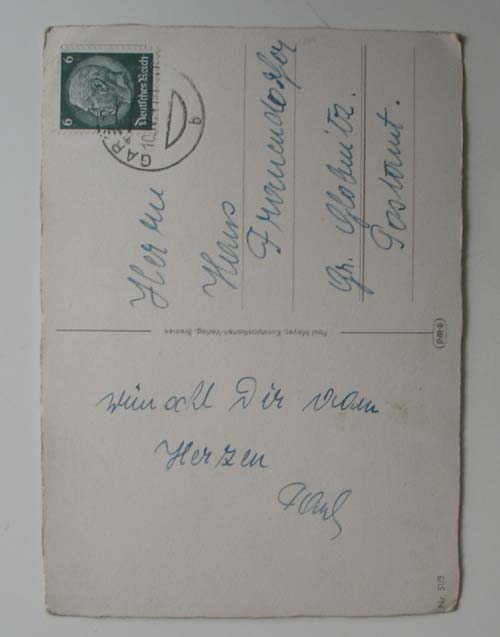 wünscht Dir vom
Herzen
Paul
Nr. 51/3
Paul Meyer, Kunstpostkarten-Verlag, Bremen
Deutsches Reich
6 6
GAR
10.
b
Herrn
Hans
Gr.
Postamt.